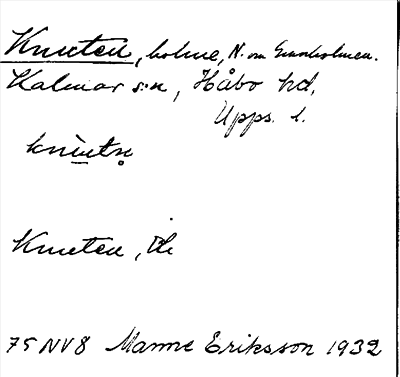 Knuten, holme, N. om Granholmen.
Kalmar s:n, Håbo hd,
Upps. l.
knùtn̥
Knuten, Ök
75 NV8 Manne Eriksson 1932